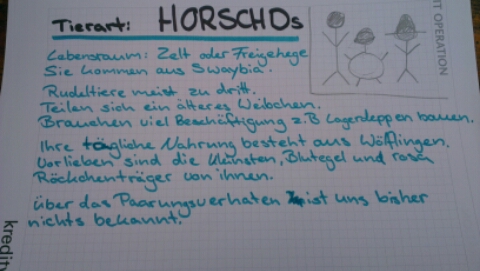 Tierart: HORSCHDs
IT OPERATION
Lebensraum: Zelt oder Freigehege
Sie kommen aus Swaybia.
Rudeltiere meist zu dritt.
Teilen sich ein älteres Weibchen.
Brauchen viel Beschäftigung z.B Lagerdeppen bauen.
Ihre tägliche Nahrung besteht aus Wölflingen.
Vorlieben sind die kleinsten, Blutegel und rosa
Röckchenträger von ihnen.
über das Paarungsverhaten ist uns bisher
nichts bekannt.
kredit